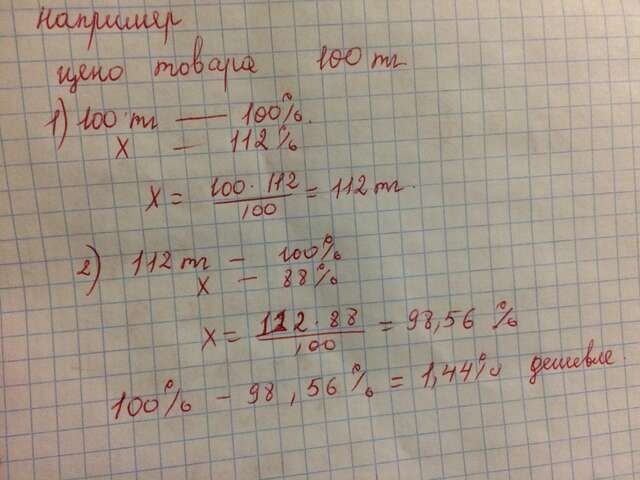 например
цено товара 100 тг
1) 100 тг — 100%.
х — 112%
х = 100 · 112 / 100 = 112 тг.
2) 112 тг — 100%
х — 88%
х = 112 · 88 / 100 = 98,56 %
100% - 98,56% = 1,44% дешевле.